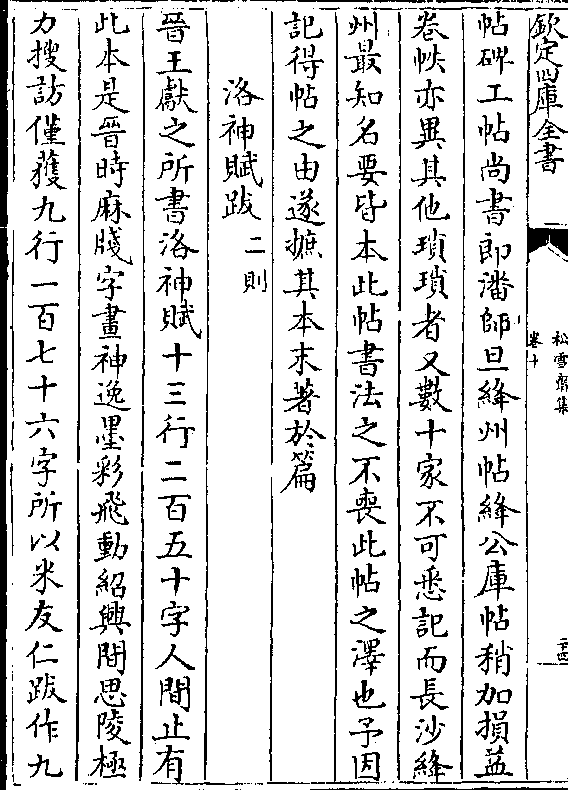 欽定四庫全書
松雪齋集
卷十
二十四
帖碑工帖尚書郎潘師旦絳州帖絳公庫帖稍加損益
卷帙亦異其他瑣瑣者又數十家不可悉記而長沙絳
州最知名要皆本此帖書法之不喪此帖之澤也予因
記得帖之由遂摭其本末著於篇
洛神賦跋二則
晉王獻之所書洛神賦十三行二百五十字人間止有
此本是晉時麻牋字畫神逸墨彩飛動紹興間思陵極
力搜訪僅獲九行一百七十六字所以米友仁跋作九